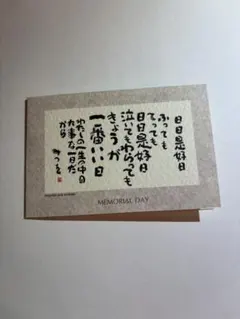 日日是好日
ふっても
てっても
日日是好日
泣いてもわらっても
きょうが
一番いい日
わたしの一生の中の
大事な一日だ
から
みつを
MEMORIAL DAY